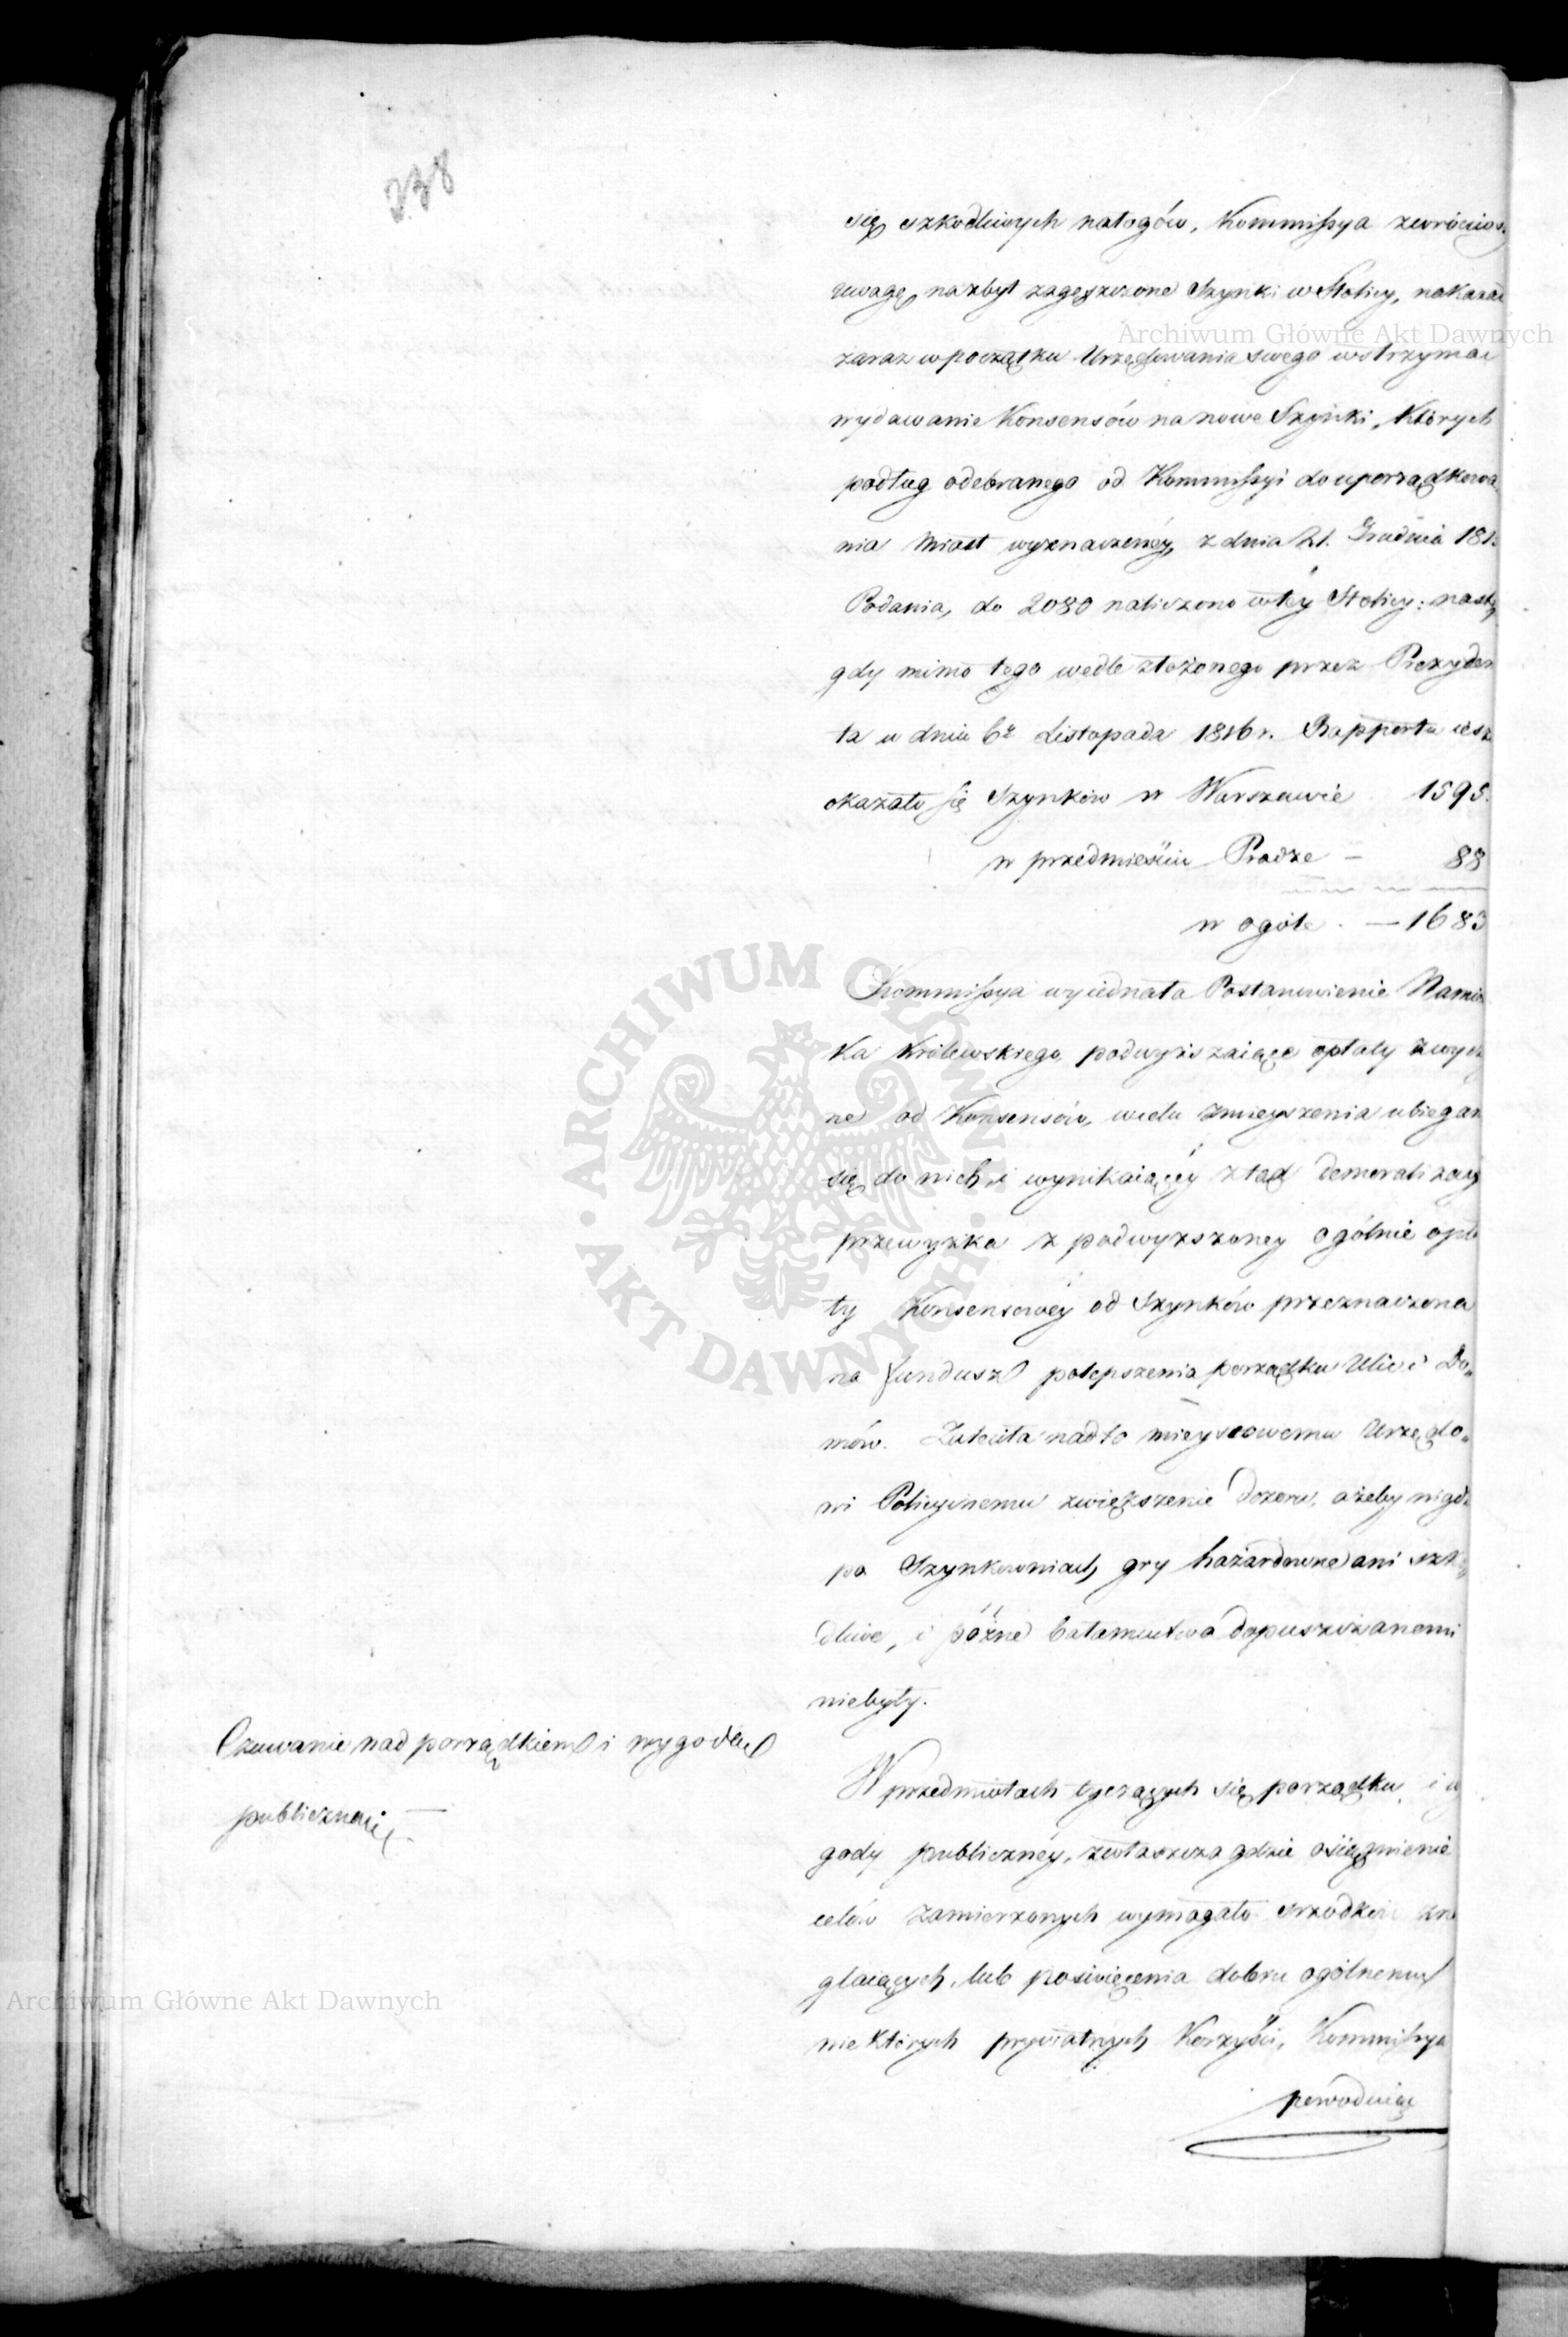 238
się szkodliwych nałogów, Kommissya zwróciws
uwagę, nazbyt zagęszczone Szynki w Stolicy, nakazał
zaraz w początku Urzędowania swego wstrzymać
wydawanie Konsensów na nowe Szynki, których
podług odebranego od Kommissyi do uporządkowa
nia Miast wyznaczoney, z dnia 21. Grudnia 181
Podania, do 2080 naliczono w téy Stolicy: nastę
gdy mimo tego wedle złożonego przez Prezyden
ta w dniu 6º Listopada 1816 r. Rapportu iesz
okazało się Szynków w Warszawie 1595.
w przedmieściu Pradze — 88
w ogóle . — 1683
Kommissya wyiednała Postanowienie Namies
ka Królewskiego, podwyższaiące opłaty zwycz
ne od Konsensów, w celu zmieyszenia ubiegan
się do nich i wynikaiącéy ztąd demoralizacy
przewyżka z podwyższoney ogólnie opła
ty Konsensowéy od Szynków przeznaczona
na fundusz polepszenia porządku Ulic i Do„
mów. Zaleciła nadto mieyscowemu Urzędo„
wi Policyinemu zwiększenie dozoru, ażeby nigdz
po Szynkowniach gry hazardowne ani szko
dliwe, i póżne bałamuctwa dopuszczanemi
niebyły.
Czuwanie nad porządkiem i wygodą
publiczną. —
W przedmiotach tyczących się porządku i wy
gody publicznéy, zwłaszcza gdzie osięgnienie
celów zamierzonych wymagało srzodków
glaiących, lub poświęcenia dobru ogólnemu
niektórych prywatnych Korzyści, Kommissya
powoduiąc
Archiwum Główne Akt Dawnych
ARCHIWUM GŁÓWNE • AKT DAWNYCH •
Archiwum Główne Akt Dawnych